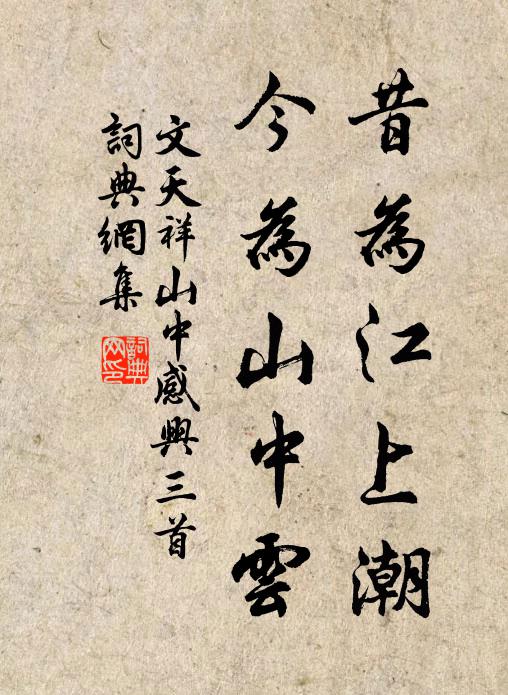 昔為江上潮
今為山中雲
文天祥山中感興三首
詞典網集
詞典
网印